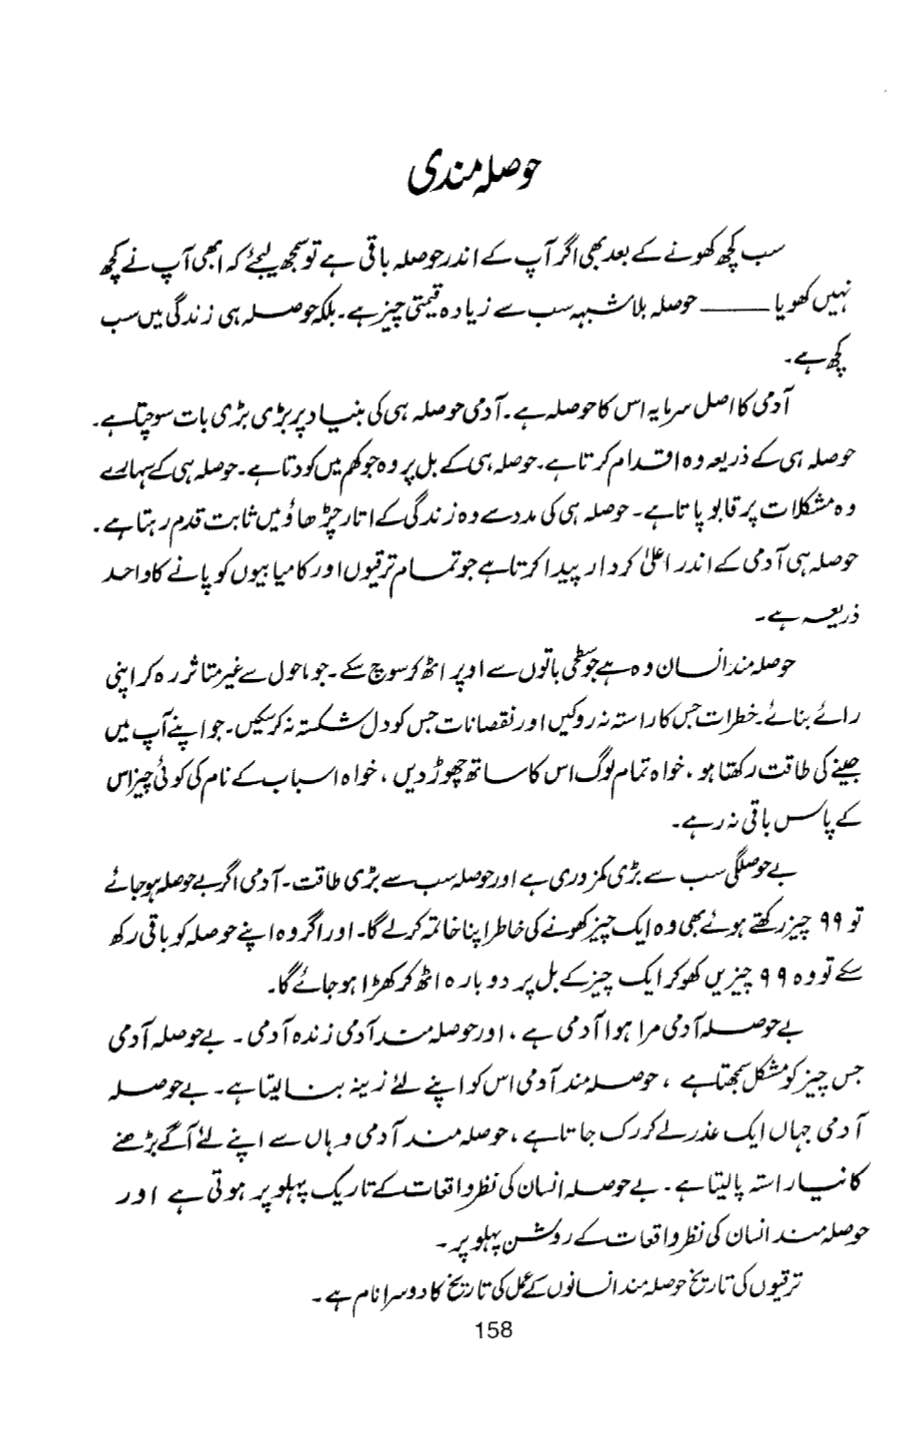 حوصلہ مندی
سب کچھ کھونے کے بعد بھی اگر آپ کے اندر حوصلہ باقی ہے تو سمجھ لیجئے کہ ابھی آپ نے کچھ
نہیں کھویا ـــــــ حوصلہ بلاشبہہ سب سے زیادہ قیمتی چیز ہے۔ بلکہ حوصلہ ہی زندگی میں سب
کچھ ہے۔
آدمی کا اصل سرمایہ اس کا حوصلہ ہے۔ آدمی حوصلہ ہی کی بنیاد پر بڑی بڑی بات سوچتا ہے۔
حوصلہ ہی کے ذریعہ وہ اقدام کرتا ہے۔ حوصلہ ہی کے بل پر وہ جوکھم میں کودتا ہے۔ حوصلہ ہی کے سہارے
وہ مشکلات پر قابو پاتا ہے۔ حوصلہ ہی کی مدد سے وہ زندگی کے اتار چڑھاؤ میں ثابت قدم رہتا ہے۔
حوصلہ ہی آدمی کے اندر اعلیٰ کردار پیدا کرتا ہے جو تمام ترقیوں اور کامیابیوں کو پانے کا واحد
ذریعہ ہے۔
حوصلہ مند انسان وہ ہے جو سطحی باتوں سے اوپر اٹھ کر سوچ سکے۔ جو ماحول سے غیر متاثر رہ کر اپنی
رائے بنائے۔ خطرات جس کا راستہ نہ روکیں اور نقصانات جس کو دل شکستہ نہ کر سکیں۔ جو اپنے آپ میں
جینے کی طاقت رکھتا ہو، خواہ تمام لوگ اس کا ساتھ چھوڑ دیں، خواہ اسباب کے نام کی کوئی چیز اس
کے پاس باقی نہ رہے۔
بے حوصلگی سب سے بڑی کمزوری ہے اور حوصلہ سب سے بڑی طاقت۔ آدمی اگر بے حوصلہ ہو جائے
تو ۹۹ چیز رکھتے ہوئے بھی وہ ایک چیز کھونے کی خاطر اپنا خاتمہ کر لے گا۔ اور اگر وہ اپنے حوصلہ کو باقی رکھ
سکے تو وہ ۹۹ چیزیں کھو کر ایک چیز کے بل پر دوبارہ اٹھ کر کھڑا ہو جائے گا۔
بے حوصلہ آدمی مرا ہوا آدمی ہے، اور حوصلہ مند آدمی زندہ آدمی۔ بے حوصلہ آدمی
جس چیز کو مشکل سمجھتا ہے، حوصلہ مند آدمی اس کو اپنے لئے زینہ بنا لیتا ہے۔ بے حوصلہ
آدمی جہاں ایک عذر لے کر رک جاتا ہے، حوصلہ مند آدمی وہاں سے اپنے لئے آگے بڑھنے
کا نیا راستہ پا لیتا ہے۔ بے حوصلہ انسان کی نظر واقعات کے تاریک پہلو پر ہوتی ہے اور
حوصلہ مند انسان کی نظر واقعات کے روشن پہلو پر۔
ترقیوں کی تاریخ حوصلہ مند انسانوں کے عمل کی تاریخ کا دوسرا نام ہے۔
158